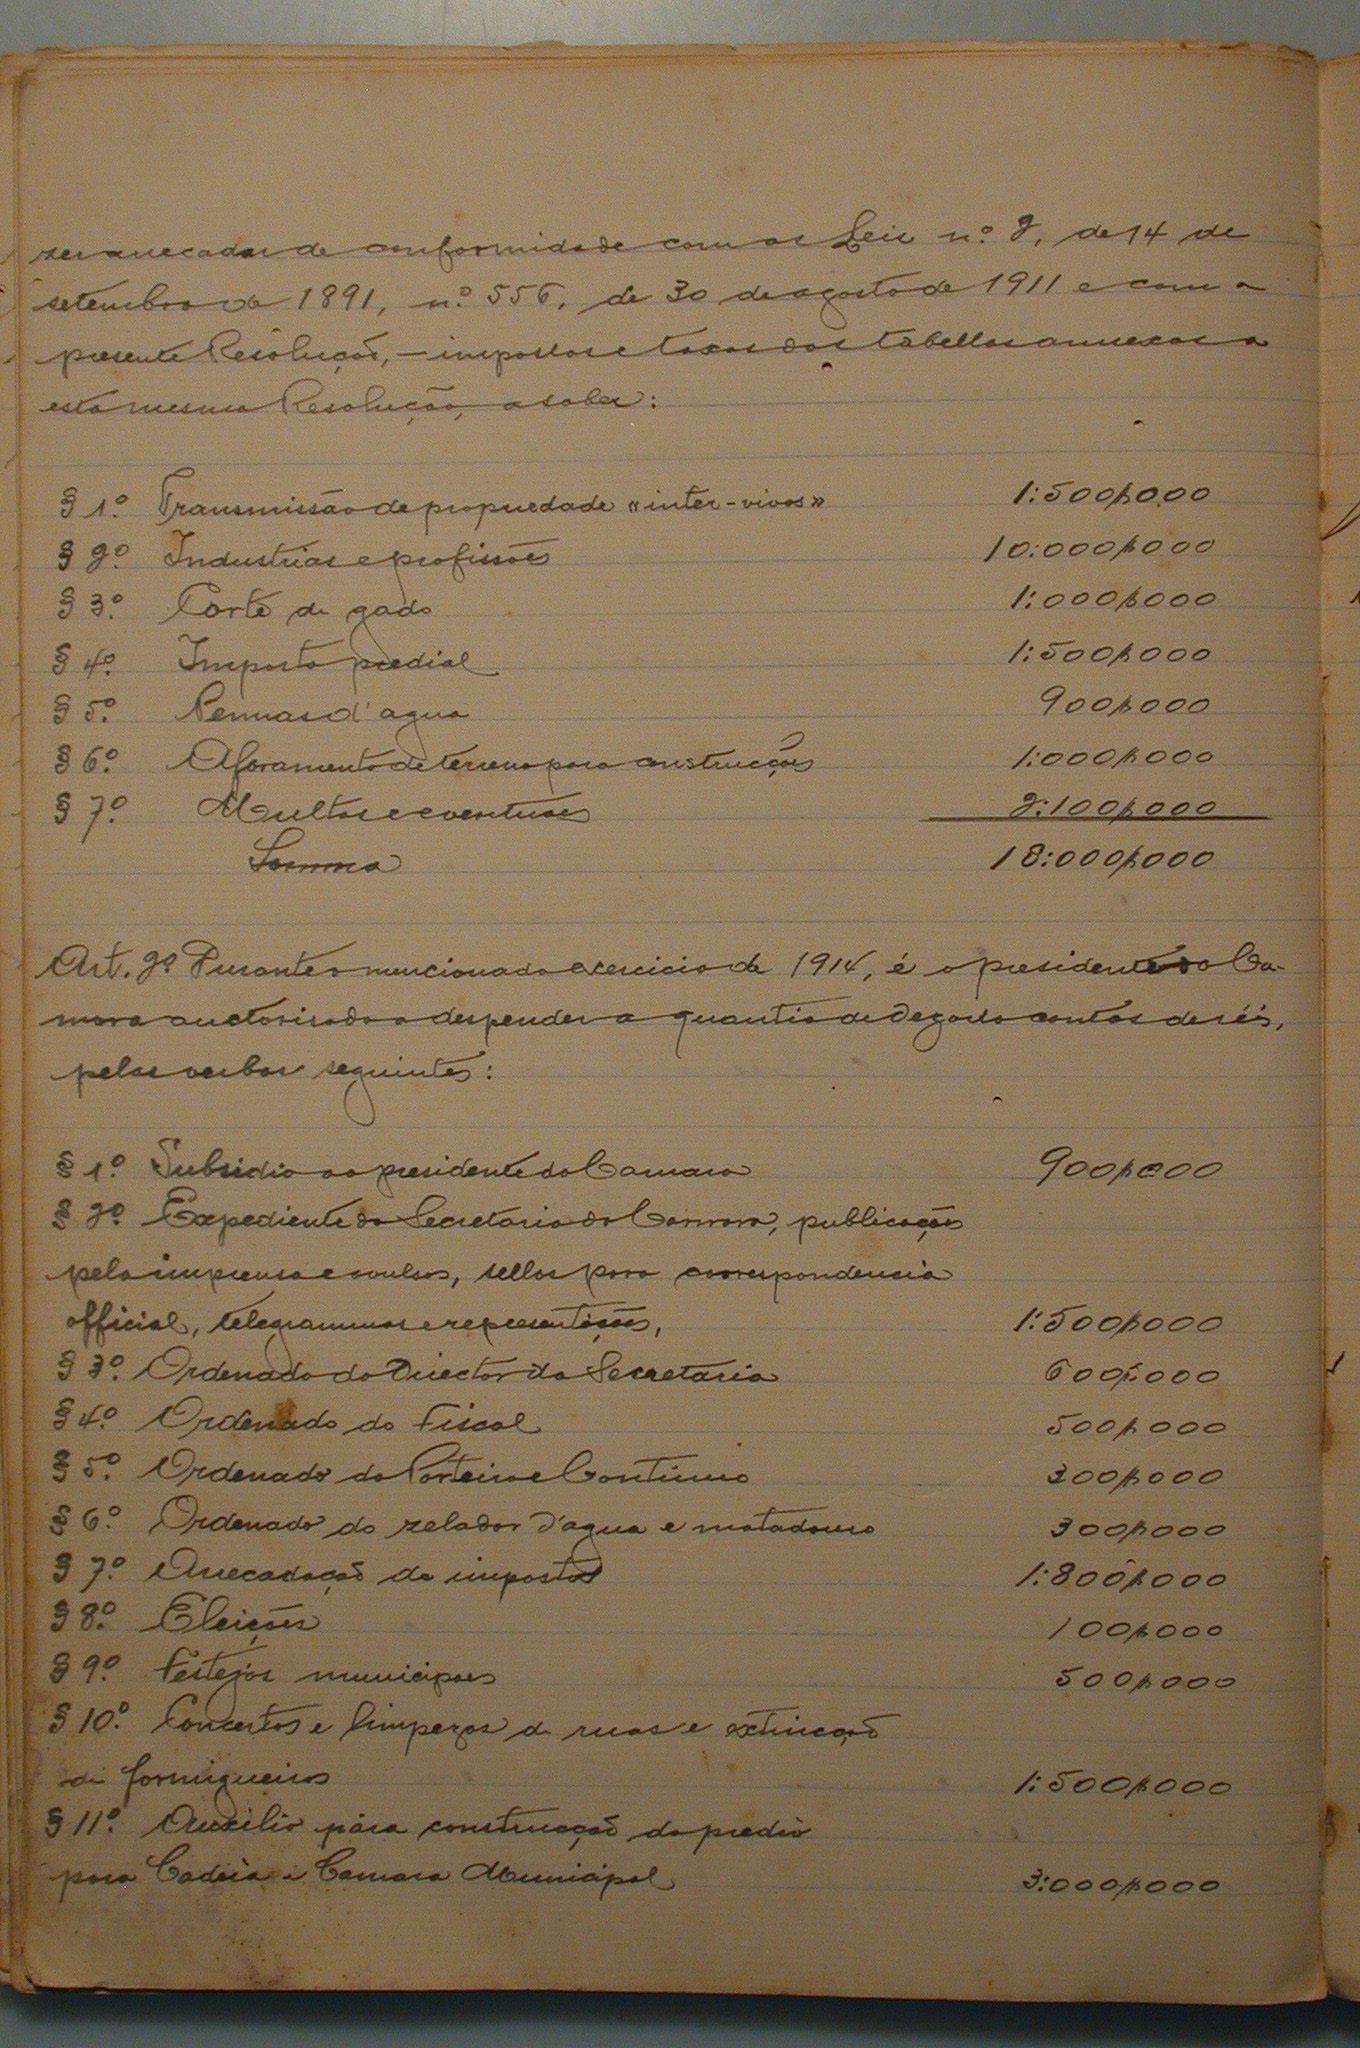 ser arrecadar de conformidade com as Leis n.º 2, de 14 de
setembro de 1891, n.º 556, de 30 de agosto de 1911 e com a
presente Resolução, — impostos e taxas das tabellas annexas a
esta mesma Resolução, a saber:
§ 1.º Transmissão de propriedade «inter-vivos» 1:500$000
§ 2.º Industrias e profissões 10:000$000
§ 3.º Corte de gado 1:000$000
§ 4.º Imposto predial 1:500$000
§ 5.º Pennas d'agua 900$000
§ 6.º Aforamento de terreno para construcções 1:000$000
§ 7.º Multas e eventuaes 2:100$000
Somma 18:000$000
Art. 2.º Durante o mencionado exercicio de 1914, é o presidente da Ca-
mara auctorisado a despender a quantia de dezoito contos de réis,
pelas verbas seguintes:
§ 1.º Subsidio ao presidente da Camara 900$000
§ 2.º Expediente da Secretaria da Camara, publicações
pela imprensa e avulsos, sellos para correspondencia
official, telegrammas e representações, 1:500$000
§ 3.º Ordenado do Director da Secretaria 600$000
§ 4.º Ordenado do Fiscal 500$000
§ 5.º Ordenado do Porteiro e Continuo 300$000
§ 6.º Ordenado do zelador d'agua e matadouro 300$000
§ 7.º Arrecadação de impostos 1:800$000
§ 8.º Eleições 100$000
§ 9.º Festejos municipaes 500$000
§ 10.º Concertos e limpezas de ruas e extincção
de formigueiros 1:500$000
§ 11.º Auxilio para construcção do predio
para Cadeia e Camara Municipal 3:000$000